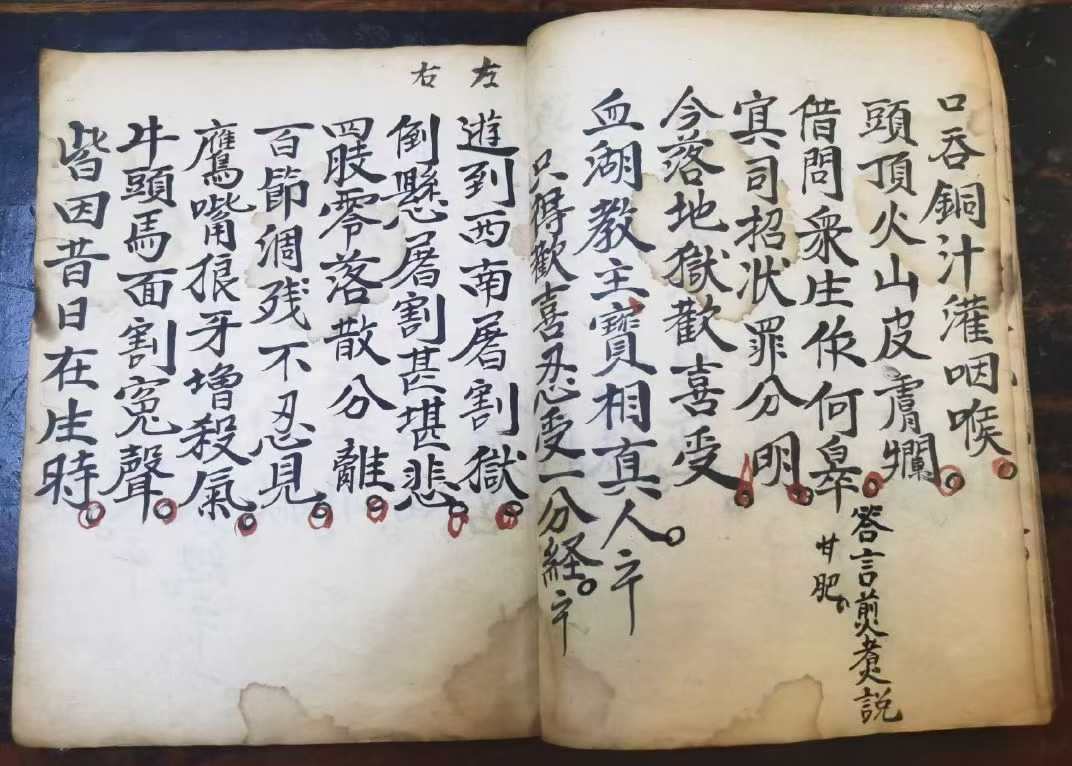 口吞銅汁灌咽喉。
頭頂火山皮膚爛。
借問衆生作何辠。
答言煎煑説
甘肥
冥司招狀罪分明。
今落地獄歡喜受
血湖教主寳相真人。
只得歡喜忍受一分経。
左
右
遊到西南屠割獄。
倒懸屠割甚堪悲。
四肢零落散分離。
百節凋残不忍見。
鷹嘴狼牙增殺氣。
牛頭馬面割冤聲。
皆因昔日在生時。